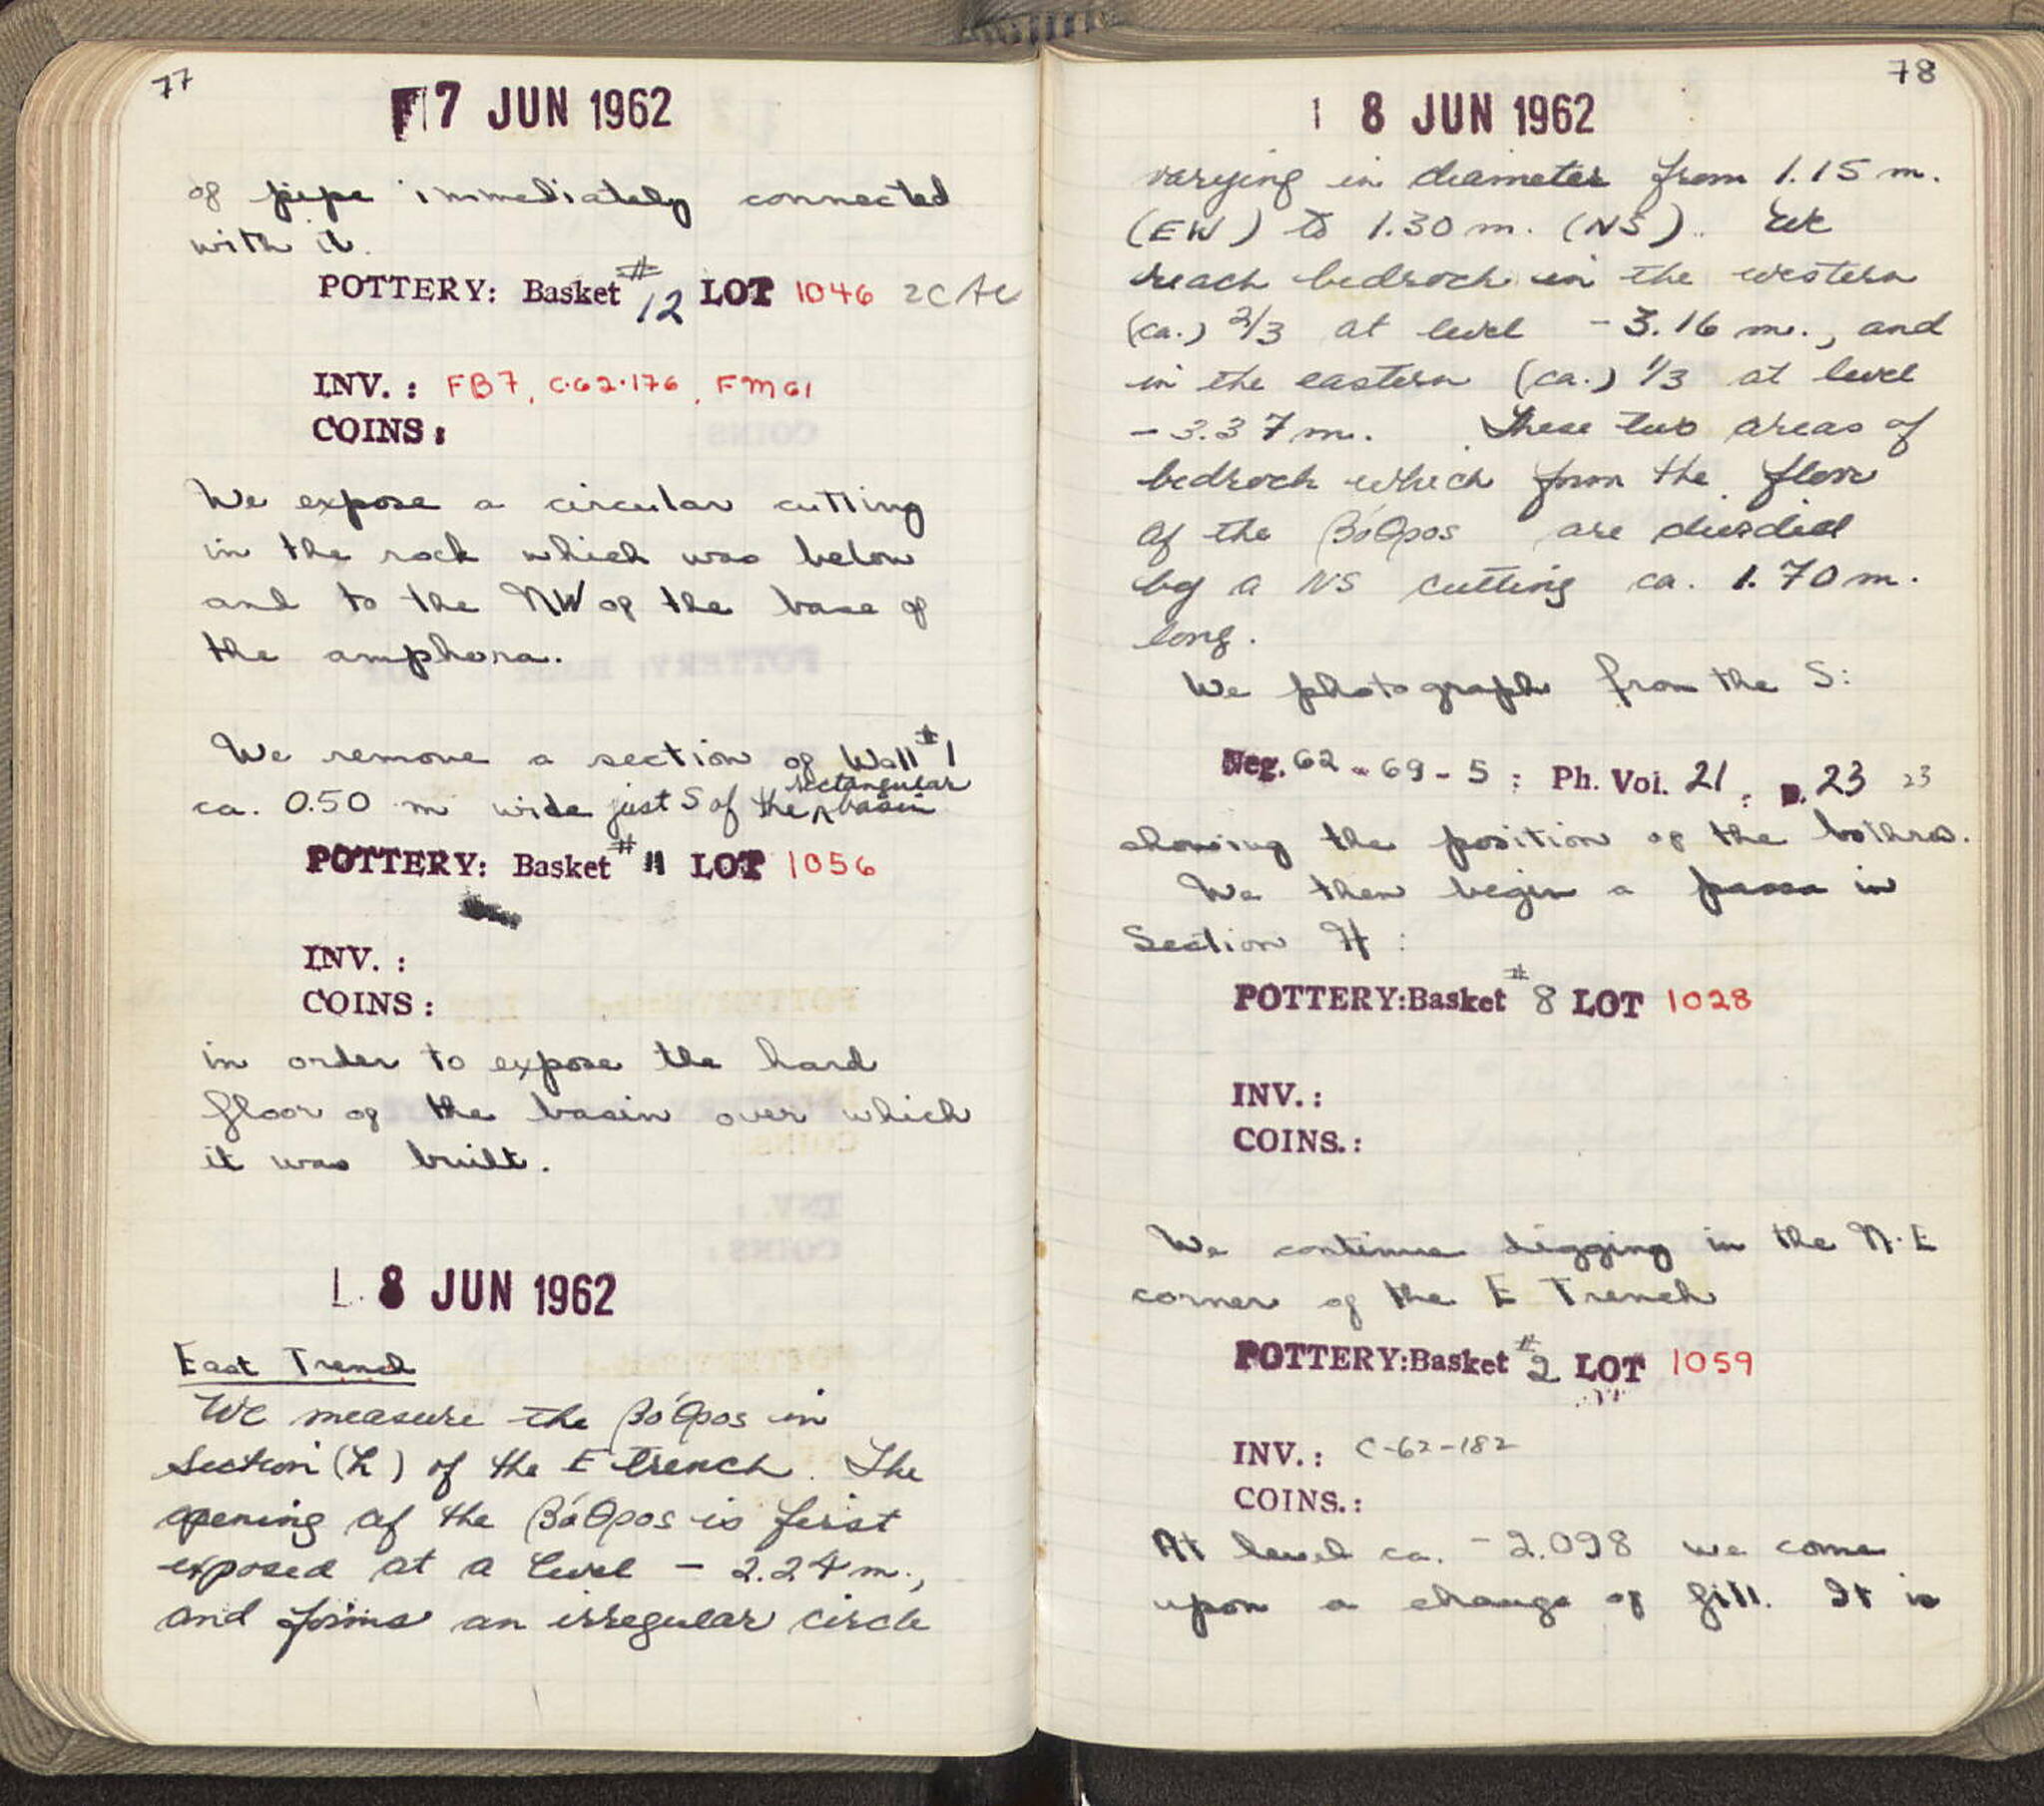 77
7 JUN 1962
of pipe immediately connected
with it.
POTTERY: Basket #12 LOT 1046 2CAU
INV. : FB7, C·62·176, FM61
COINS :
We expose a circular cutting
in the rock which was below
and to the NW of the base of
the amphora.
We remove a section of Wall #1
ca. 0.50 m wide just S of the rectangular basin
POTTERY: Basket #11 LOT 1056
INV. :
COINS :
in order to expose the hard
floor of the basin over which
it was built.
8 JUN 1962
East Trench
We measure the βόθρος in
Section (h) of the E trench. The
opening of the βόθρος is first
exposed at a level - 2.24 m.,
and forms an irregular circle
78
8 JUN 1962
varying in diameter from 1.15 m.
(EW) to 1.30 m. (NS). We
reach bedrock in the western
(ca.) 2/3 at level - 3.16 m., and
in the eastern (ca.) 1/3 at level
- 3.37 m. These two areas of
bedrock which form the floor
of the βόθρος are divided
by a NS cutting ca. 1.70 m.
long.
We photograph from the S:
Neg. 62 - 69 - 5 : Ph. Vol. 21 : p. 23 23
showing the position of the bothros.
We then begin a passa in
Section H :
POTTERY:Basket #8 LOT 1028
INV. :
COINS. :
We continue digging in the N·E
corner of the E Trench
POTTERY:Basket #2 LOT 1059
INV. : C-62-182
COINS. :
At level ca. - 2.098 we come
upon a change of fill. It is